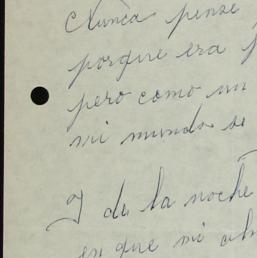 Nunca pense
porque era
pero como un
mi mundo se
Y de la noche
en que mi